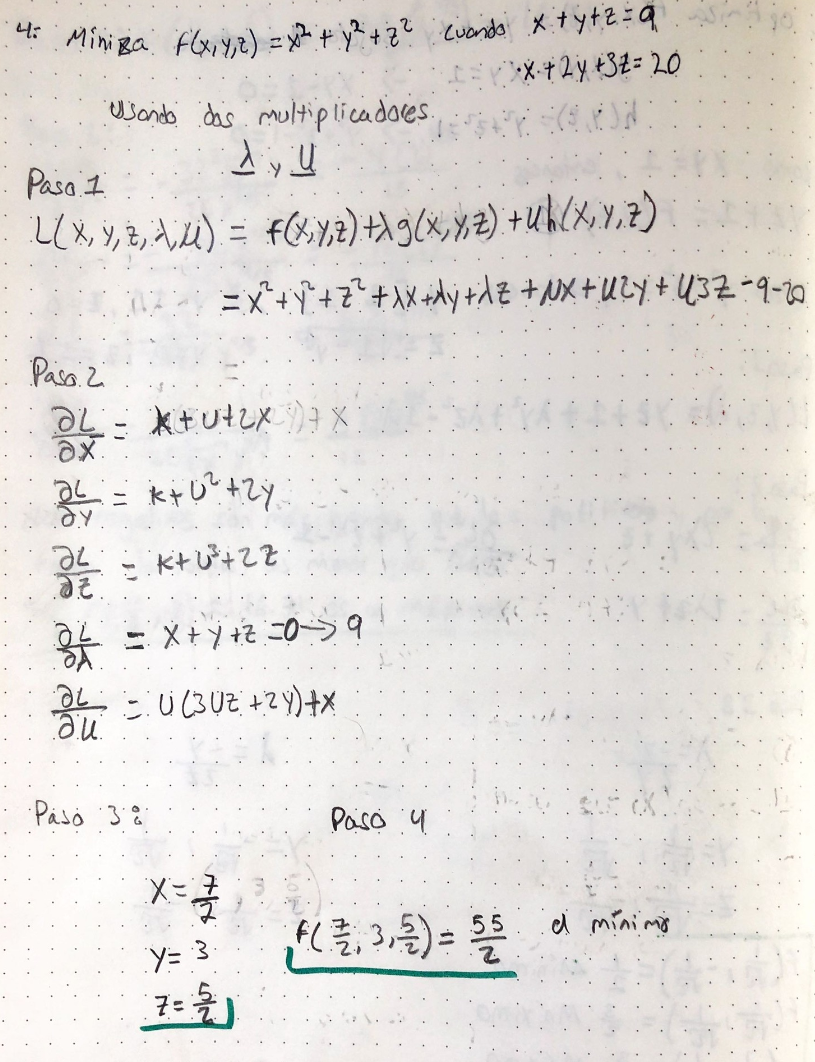 4: Miniza f(x,y,z) = x² + y² + z² cuando x + y + z = 9
x + 2y + 3z = 20
Usando dos multiplicadores
λ y U
Paso 1
L(x, y, z, λ, μ) = f(x,y,z) + λg(x,y,z) + Uh(x,y,z)
= x² + y² + z² + λx + λy + λz + μx + U2y + U3z - 9 - 20
Paso 2 =
∂L/∂x = k + U + 2x + x
∂L/∂y = k + U² + 2y
∂L/∂z = k + U³ + 2z
∂L/∂λ = x + y + z = 0 → 9
∂L/∂U = U(3Uz + 2y) + x
Paso 3: Paso 4
x = 7/2
f(7/2, 3, 5/2) = 55/2 el mínimo
y = 3
z = 5/2